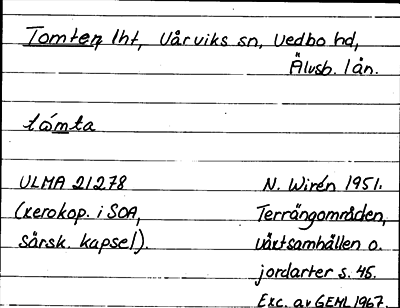 Tomten lht, Vårviks sn, Vedbo hd,
Älvsb. län.
tómta
ULMA 21278
(xerokop. i SOA,
särsk. kapsel).
N. Wirén 1951.
Terrängområden,
växtsamhällen o.
jordarter s. 45.
Exc. av GEHL 1967.